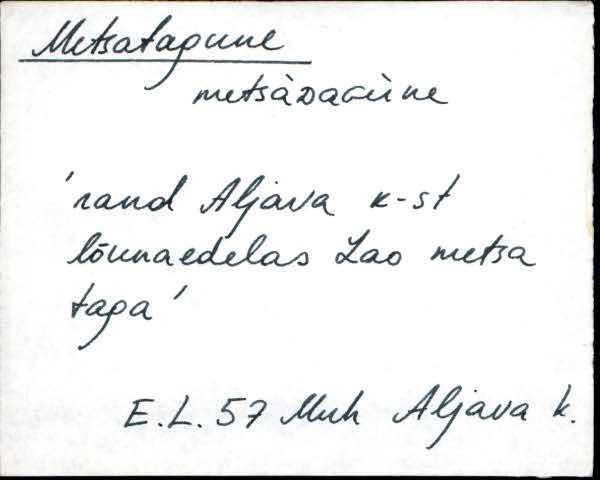 Metsatagune
metsàᴅaɢùne
'rand Aljava k-st
lõunaedelas Lao metsa
taga'
E.L. 57 Muh Aljava k.